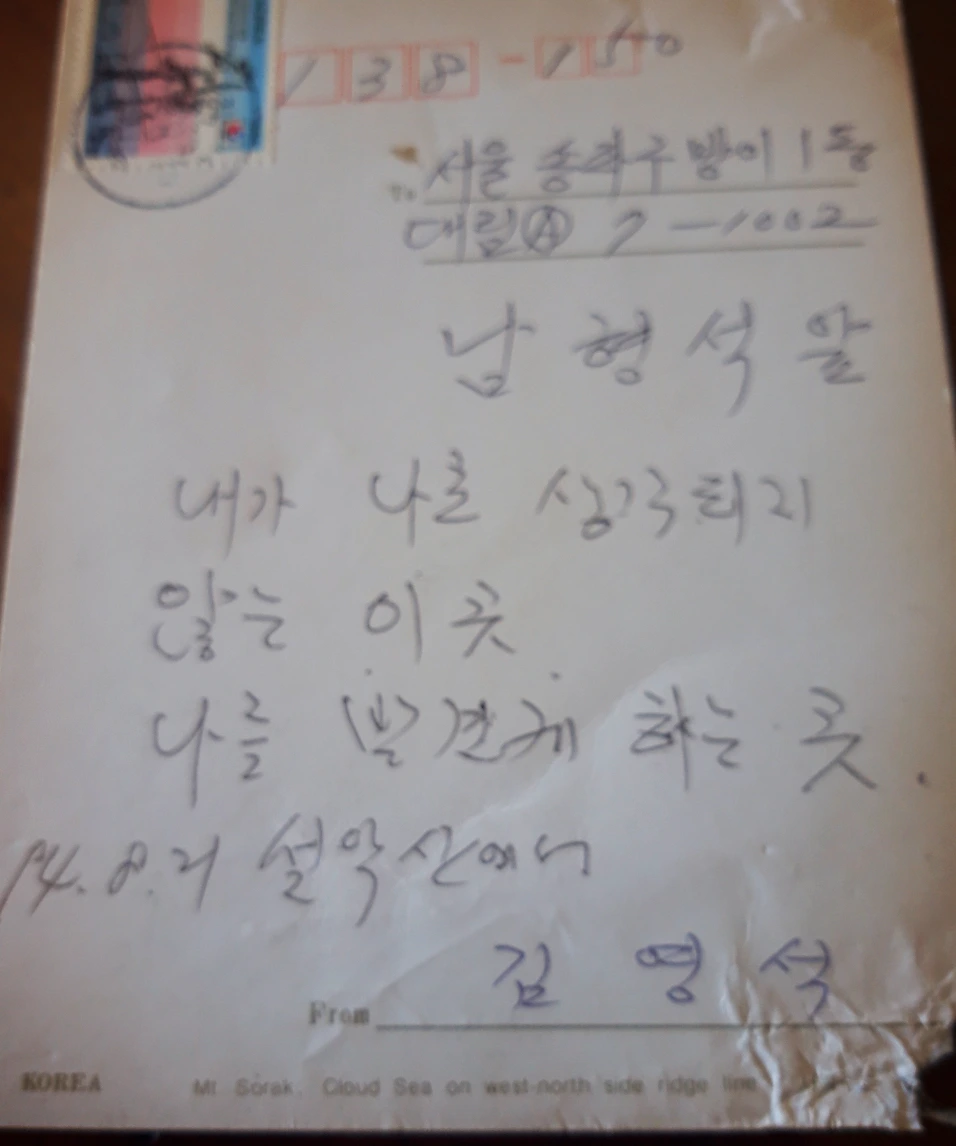 138-150
To 서울 송파구 방이 1동
대림Ⓐ 7-1002
남형석 앞
내가 나로 생각되지
않는 이 곳
나를 발견케 하는 곳.
설악산에서
김영석
From
KOREA
Mt Sorak. Cloud Sea on west-north side ridge line